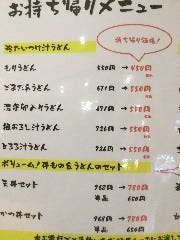 お持ち帰りメニュー
持ち帰り価格!
冷たいつけ汁うどん
もりうどん 550円 → 450円
ごまだれうどん 671円 → 550円
温玉卵とりうどん 671円 → 550円
梅おろしうどん 726円 → 550円
とろろ汁うどん 726円 → 550円
ボリューム!丼ものとうどんのセット
天丼セット 968円 → 780円
単品 650円
かつ丼セット 968円 → 780円
単品 650円